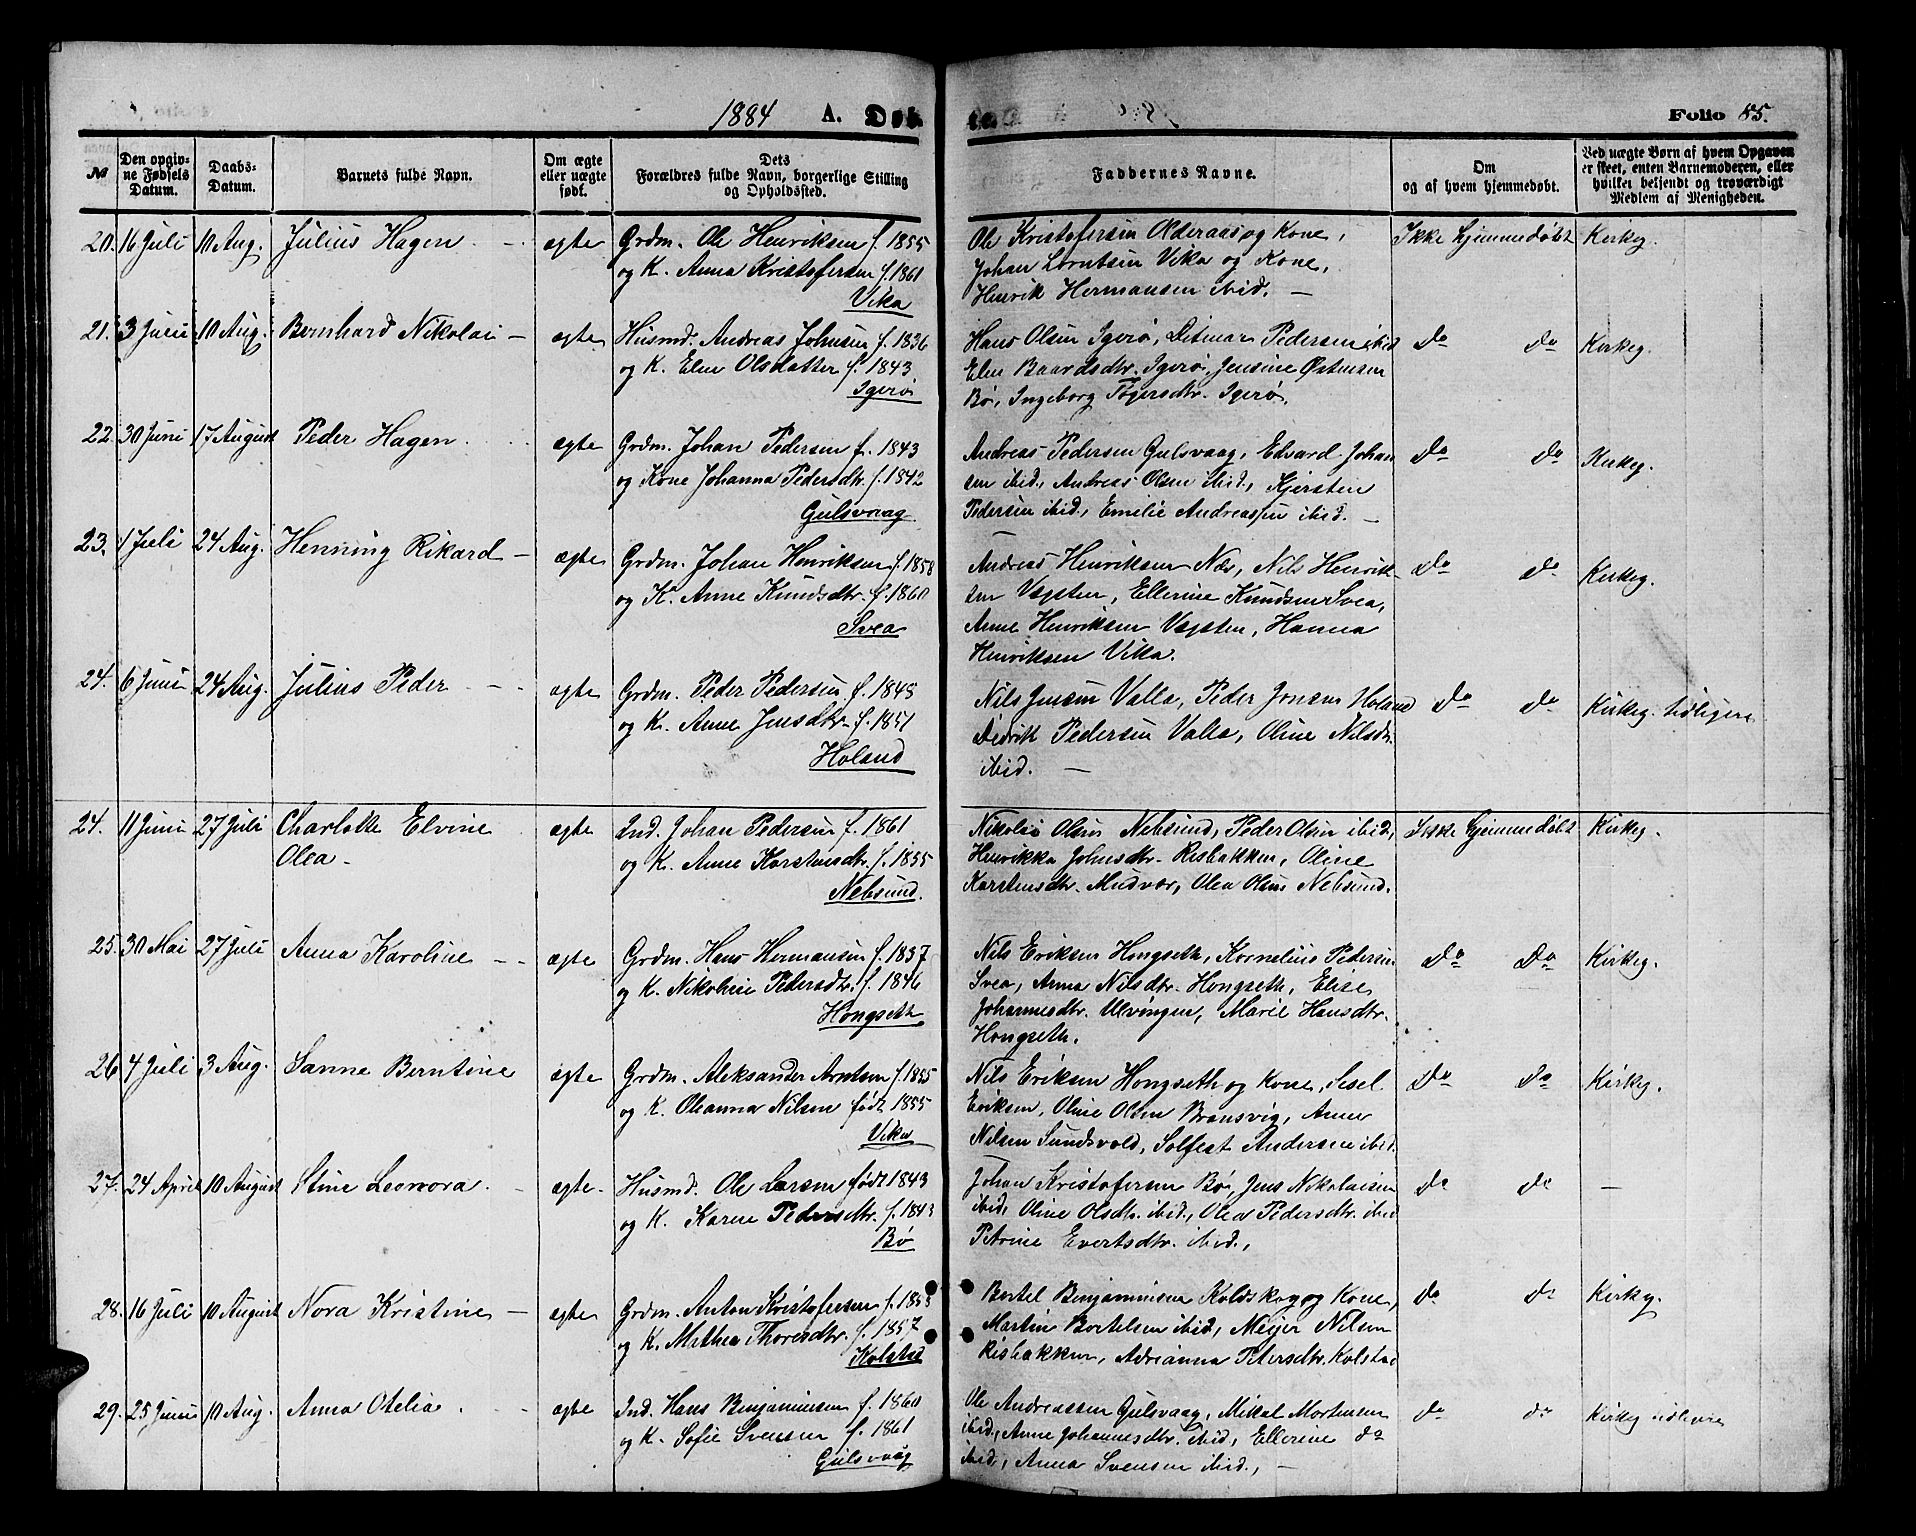 1884 A. Døb te. Folio 85.
№ Den opgivne Fødsels Datum. Daabs-Datum. Barnets fulde Navn. Om ægte eller uægte født. Dets Forældres fulde Navn, borgerlige Stilling og Opholdssted. Faddernes Navne. Om og af hvem hjemmedøbt. Ved uægte Børn af hvem Opgaven er skeet, enten Barnemoderen, eller hvilket betjendt og troværdigt Medlem af Menigheden.
20. 16 Juli 10 Aug. Julius Hagen - ægte Grdm. Ole Henriksen f. 1855 Ole Kristofersen Olderaas og Kone, Ikke hjemmedøbt Kirkeg.
og K. Anna Kristofersen f. 1861 Johan Lorntsen Vika og Kone,
Vika Henrik Hermansen ibid. -
21. 3 Juni 10 Aug. Bernhard Nikolai - ægte Husmd. Andreas Johnsen f. 1836 Hans Olsen Igerø, Ditmar Pedersen ibid do do Kirkeg.
og K. Elen Olsdatter f. 1843 Elen Baardsdtr. Igerø, Jensine Østensen
Igerø Bø, Ingeborg Tøgersdtr. Igerø.
22. 30 Juni 17 August Peder Hagen. ægte Grdm. Johan Pedersen f. 1843 Andreas Pedersen Gulsvaag, Edvard Johan do do Kirkeg.
og Kone Johanna Pedersdtr. f. 1842 sen ibid, Andreas Olsen ibid., Kjersten
Gulsvaag Pedersen ibid, Emilie Andreassen ibid. -
23. 1 Juli 24 Aug. Henning Rikard - ægte Grdm. Johan Henriksen f. 1858 Andreas Henriksen Næs, Nils Henrik- do do Kirkeg.
og K. Anne Knudsdtr. f. 1860 sen Vægsten, Ellerine Knudsen Svea,
Svea Anne Henriksen Vægsten, Hanna
Henriksen Vika.
24. 6 Juni 24 Aug. Julius Peder - - ægte Grdm. Peder Pedersen f. 1848 Nils Jensen Valla, Peder Jonsen Holand do do Kirkeg. tidligere
og K. Anne Jensdtr. f. 1851 Didrik Pedersen Valla, Oline Nilsdtr.
Holand ibid. -
24. 11 Juni 27 Juli Charlotte Elvine ægte Ind. Johan Pedersen f. 1861 Nikolai Olsen Nebsund, Peder Olsen ibid, Ikke hjemmedøbt Kirkeg.
Olea - og K. Anne Karstensdtr. f. 1855 Henrikka Johnsdtr. Risbakken, Oline
Nebsund. Karstensdtr. Mudvær, Olea Olsen Nebsund.
25. 30 Mai 27 Juli Anna Karoline - - ægte Grdm. Hans Hermansen f. 1837 Nils Eriksen Hongseth, Kornelius Pedersen do do Kirkeg.
og K. Nikoline Pedersdtr. f. 1846 Svea, Anna Nilsdtr. Hongseth, Elise
Hongseth Johannesdtr. Ulvingen, Marie Hansdtr.
Hongseth.
26 4 Juli 3 Aug. Sanne Berntine ægte Grdm. Aleksander Arntsen f. 1855 Nils Eriksen Hongseth og Kone, Sesel do do Kirkeg.
og K. Oleanna Nilsen født 1855 Eriksen, Oline Olsen Bransvig, Anne
Vika Nilsen Sundsvold, Solfest Andersen ibid.
27. 24 April 10 August Stine Leonora. - ægte - Husmd. Ole Larsen født 1843 Johan Kristofersen Bø, Jens Nikolaisen do do -
og K. Karen Pedersdtr. f. 1843 ibid, Oline Olsdtr. ibid., Olea Pedersdtr. ibid
Bø Petrine Evertsdtr. ibid.,
28. 16 Juli 10 August Nora Kristine - ægte Grdm. Anton Kristofersen f. Bortel Benjaminsen Koldskog og Kone, do do Kirkg.
og K. Mathea Thoresdtr. f. 1857 Martin Bortelsen ibid, Meyer Nilsen
Kolstad Risbakken, Adrianna Petersdtr. Kolstad
29. 25 Juni 10 Aug. Anna Otelia. - ægte Ind. Hans Benjaminsen f. 1860 Ole Andreassen Gulsvaag, Mikal Mortensen do do Kirkeg tidligere
og K. Sofie Svensen f. 1861 ibid., Anne Johannesdtr. ibid, Ellerine do
Gulsvaag ibid, Anna Svensen ibid., -